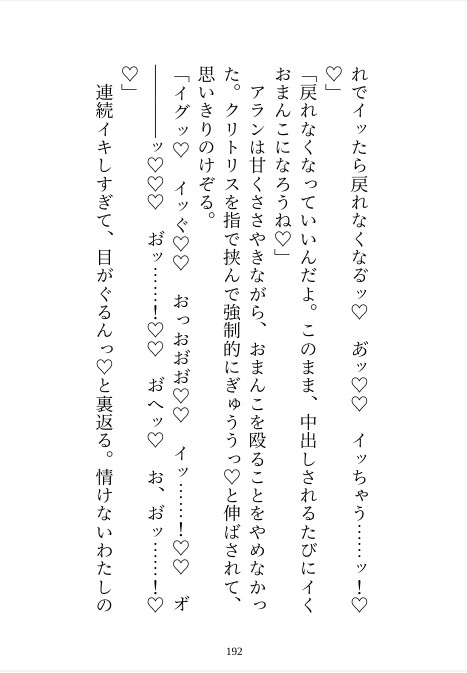 れでイッたら戻れなくなるッ♡　あ゙ッ♡♡　イッちゃう……ッ！♡
♡」
「戻れなくなっていいんだよ。このまま、中出しされるたびにイく
おまんこになろうね♡」
　アランは甘くささやきながら、おまんこを殴ることをやめなかっ
た。クリトリスを指で挟んで強制的にぎゅううっ♡と伸ばされて、
思いきりのけぞる。
「イグッ♡　イッぐ♡♡　おっおお゙お゙♡♡　イッ……！♡♡　オ゙
――――ッ♡♡♡　お゙ッ……！♡♡　お゙へッ♡　お、お゙ッ……！♡
♡」
　連続イキしすぎて、目がぐるんっ♡と裏返る。情けないわたしの
192